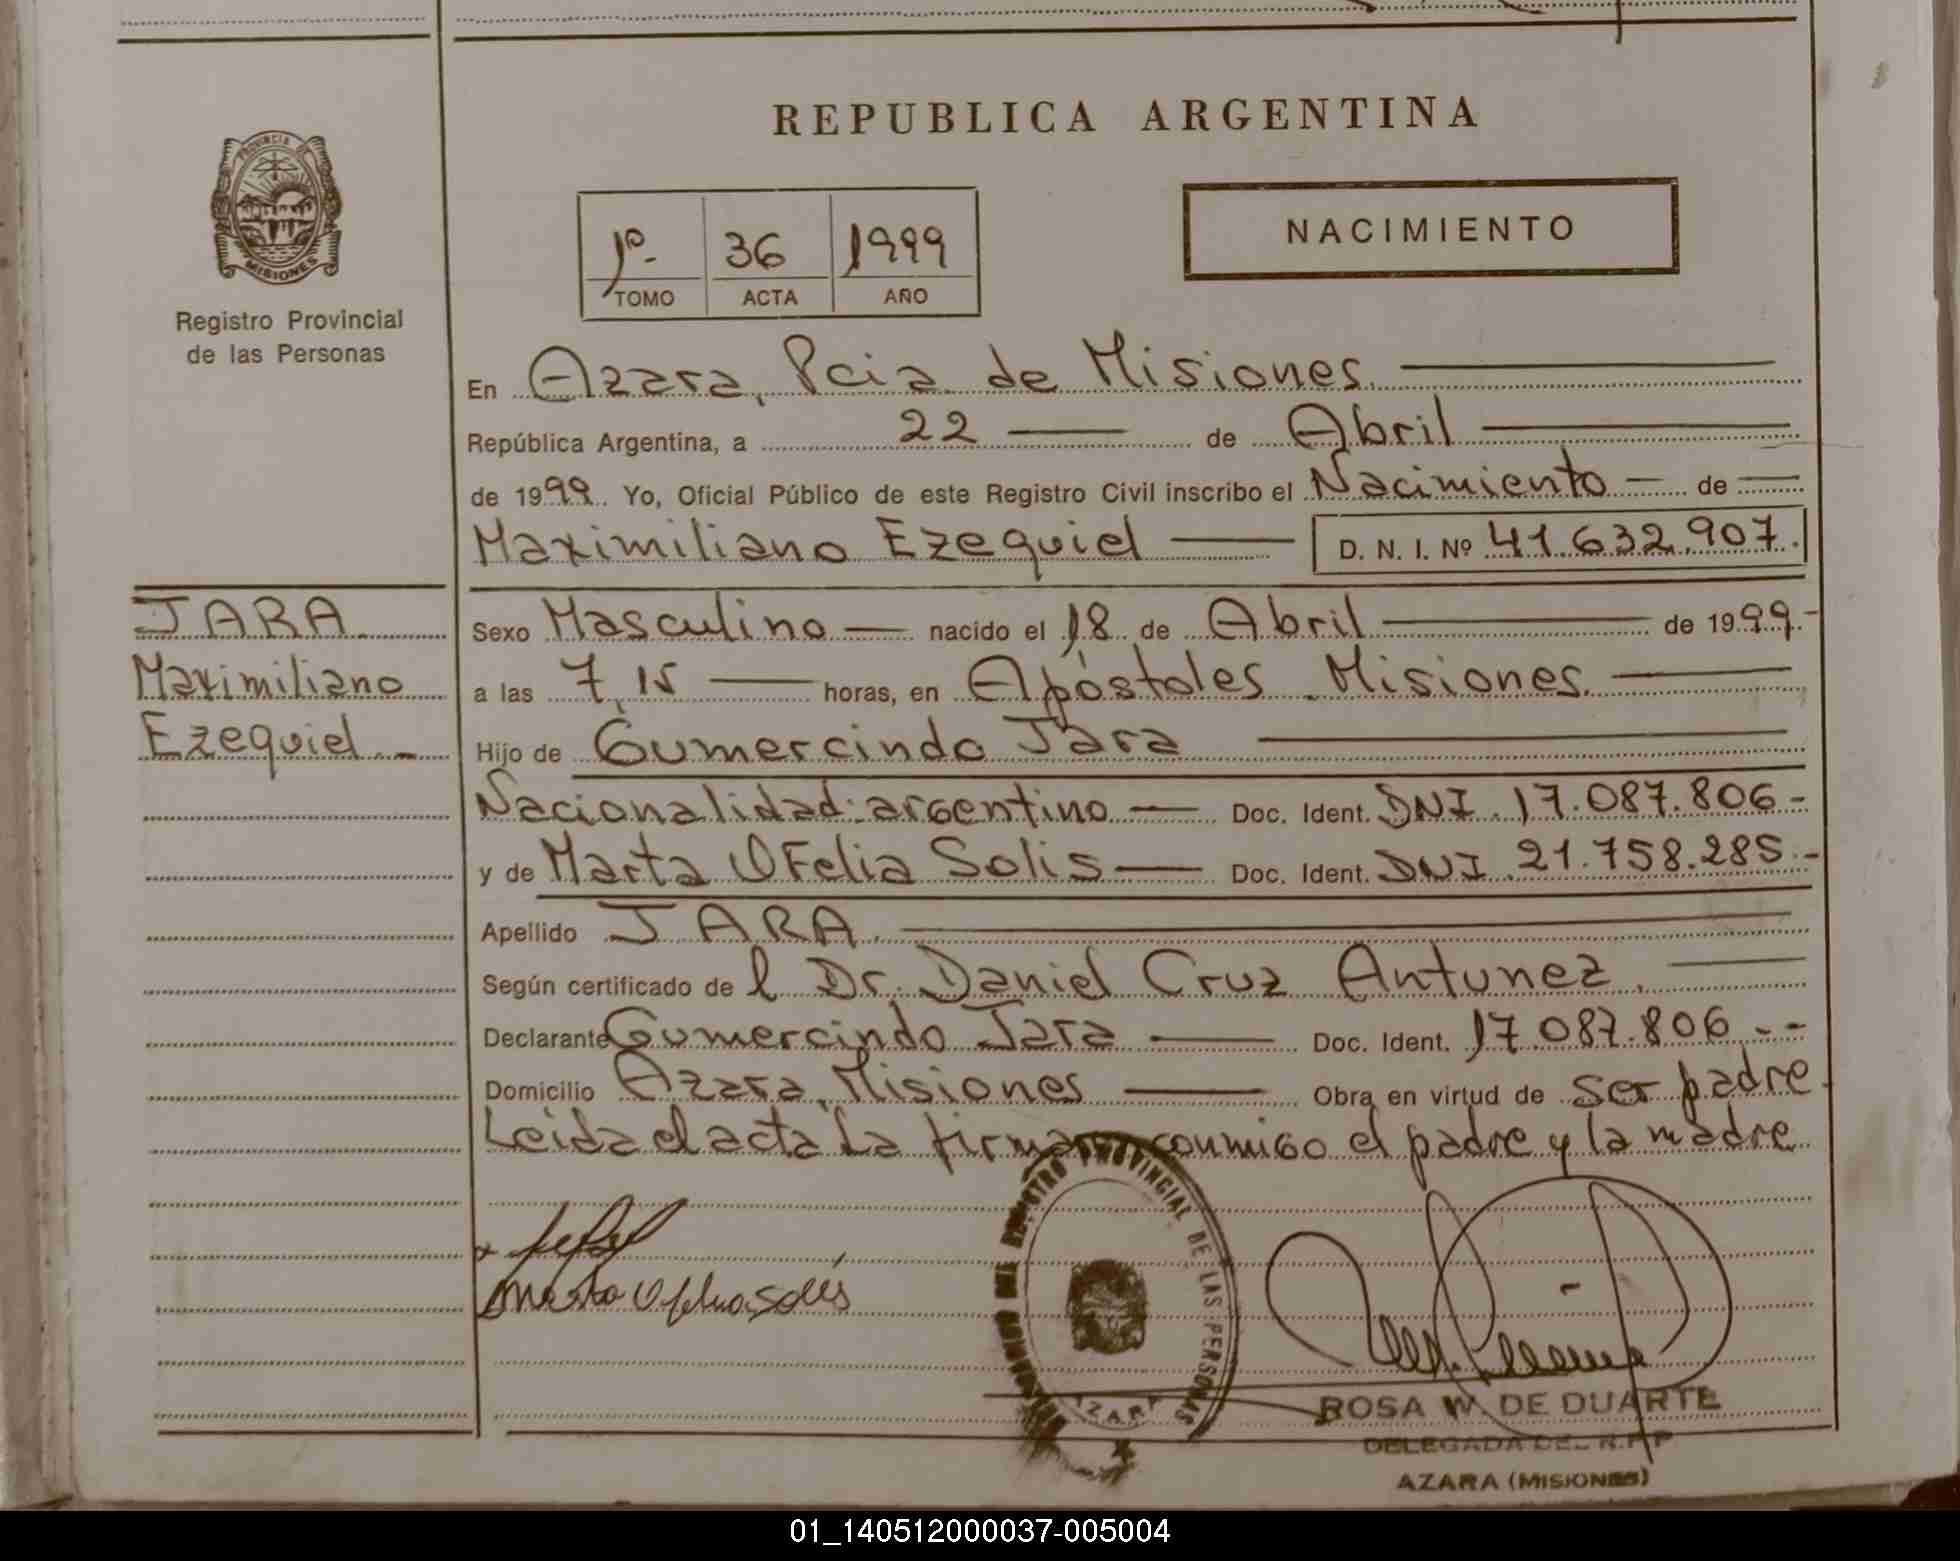 REPUBLICA ARGENTINA
PROVINCIA DE
MISIONES
Registro Provincial
de las Personas
1º- 36 1999
TOMO ACTA AÑO
NACIMIENTO
En Azara, Pcia de Misiones
República Argentina, a 22 de Abril
de 1999 Yo, Oficial Público de este Registro Civil inscribo el Nacimiento de
Maximiliano Ezequiel D. N. I. Nº 41.632.907.
JARA
Maximiliano
Ezequiel.-
Sexo Masculino nacido el 18 de Abril de 1999.-
a las 7,15 horas, en Apóstoles Misiones
Hijo de Gumercindo Jara
Nacionalidad: argentino Doc. Ident. DNI. 17.087.806-
y de Marta Ofelia Solis Doc. Ident. DNI 21.758.285.-
Apellido JARA
Según certificado de l Dr. Daniel Cruz Antunez.
Declarante Gumercindo Jara Doc. Ident. 17.087.806.--
Domicilio Azara, Misiones Obra en virtud de ser padre
Leida el acta la firman conmigo el padre y la madre
Marta Ofelia Solis
REGISTRO PROVINCIAL DE LAS PERSONAS
AZARA
ROSA W. DE DUARTE
DELEGADA DEL R.P.P
AZARA (MISIONES)
01_140512000037-005004